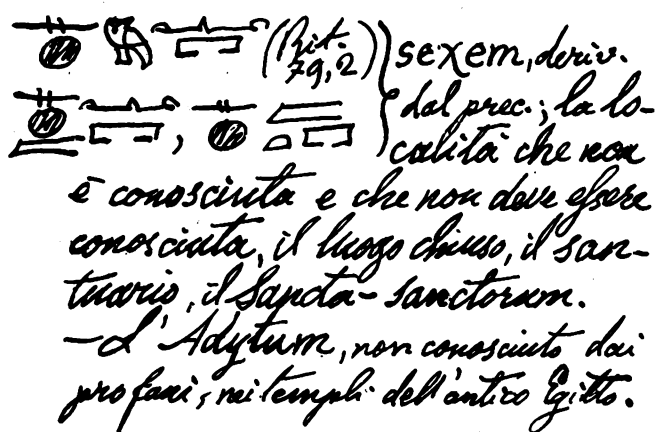 (Rit. 79,2) sexem, deriv.
dal prec.; la lo-
calità che non
è conosciuta e che non deve essere
conosciuta, il luogo chiuso, il san-
tuario, il Sancta-Sanctorum.
— L'Adytum, non conosciuto dai
profani, nei templi dell'antico Egitto.